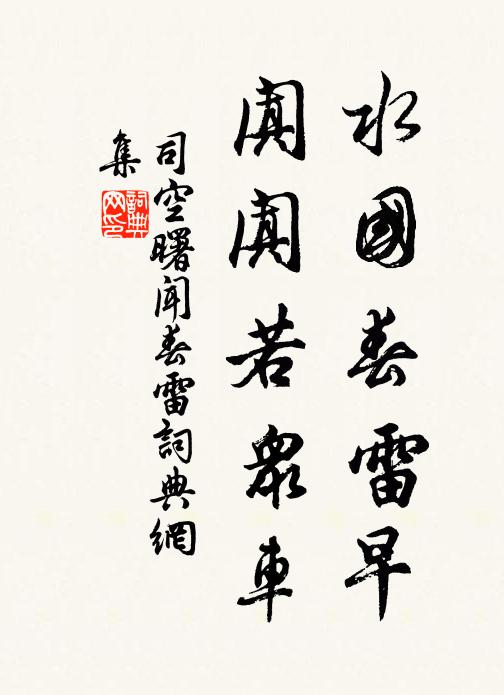 水國春雷早
闐闐若衆車
司空曙聞春雷詞典網
集
詞典
网印